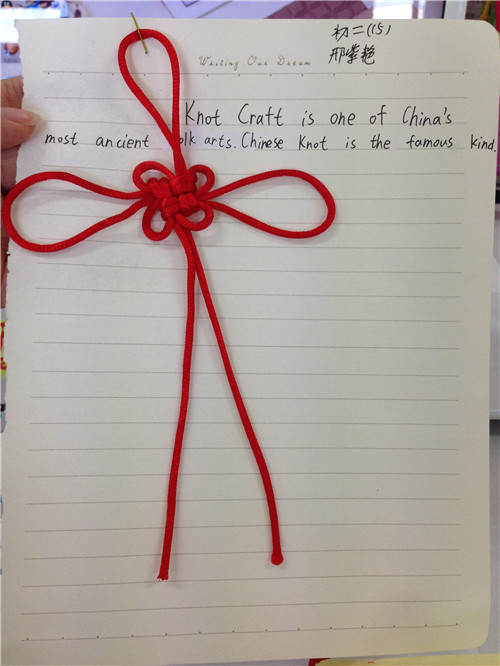 Writing Our Dream
初二(15)
邢紫艳
Knot Craft is one of China's
most ancient olk arts. Chinese Knot is the famous kind.